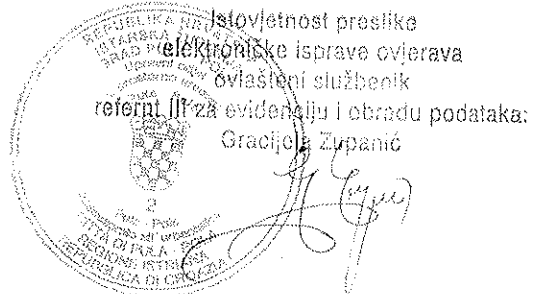 Istovjetnost preslike
elektroničke isprave ovjerava
ovlašteni službenik
refernt III za evidenciju i obradu podataka:
Gracijela Zupanić
REPUBLIKA
ISTARSKA
GRAD
Upravni odjel
Pula
2
Pula - Pola
CITTÀ DI PULA - POLA
REGIONE ISTRIANA
REPUBBLICA DI CROAZIA